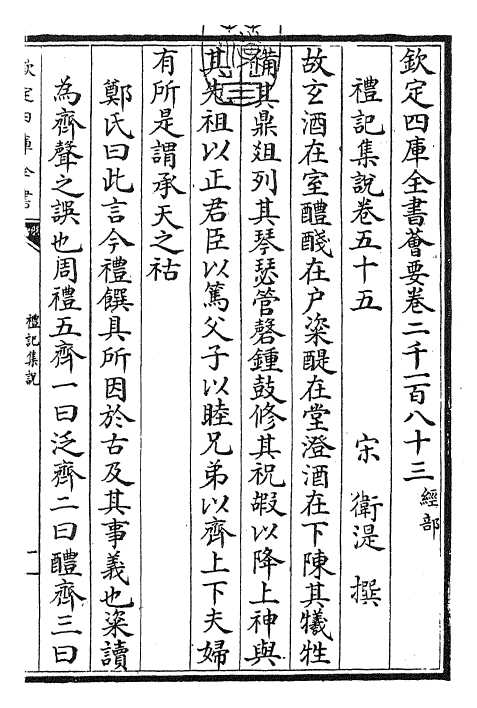 欽定四庫全書薈要卷二千一百八十三 經部
禮記集說卷五十五 宋 衛湜 撰
故玄酒在室醴醆在户粢醍在堂澄酒在下陳其犧牲
備其鼎俎列其琴瑟管磬鍾鼓修其祝嘏以降上神與
其先祖以正君臣以篤父子以睦兄弟以齊上下夫婦
有所是謂承天之祜
鄭氏曰此言今禮饌具所因於古及其事義也粢讀
為齊聲之誤也周禮五齊一曰泛齊二曰醴齊三曰
欽定四庫全書
禮記集說